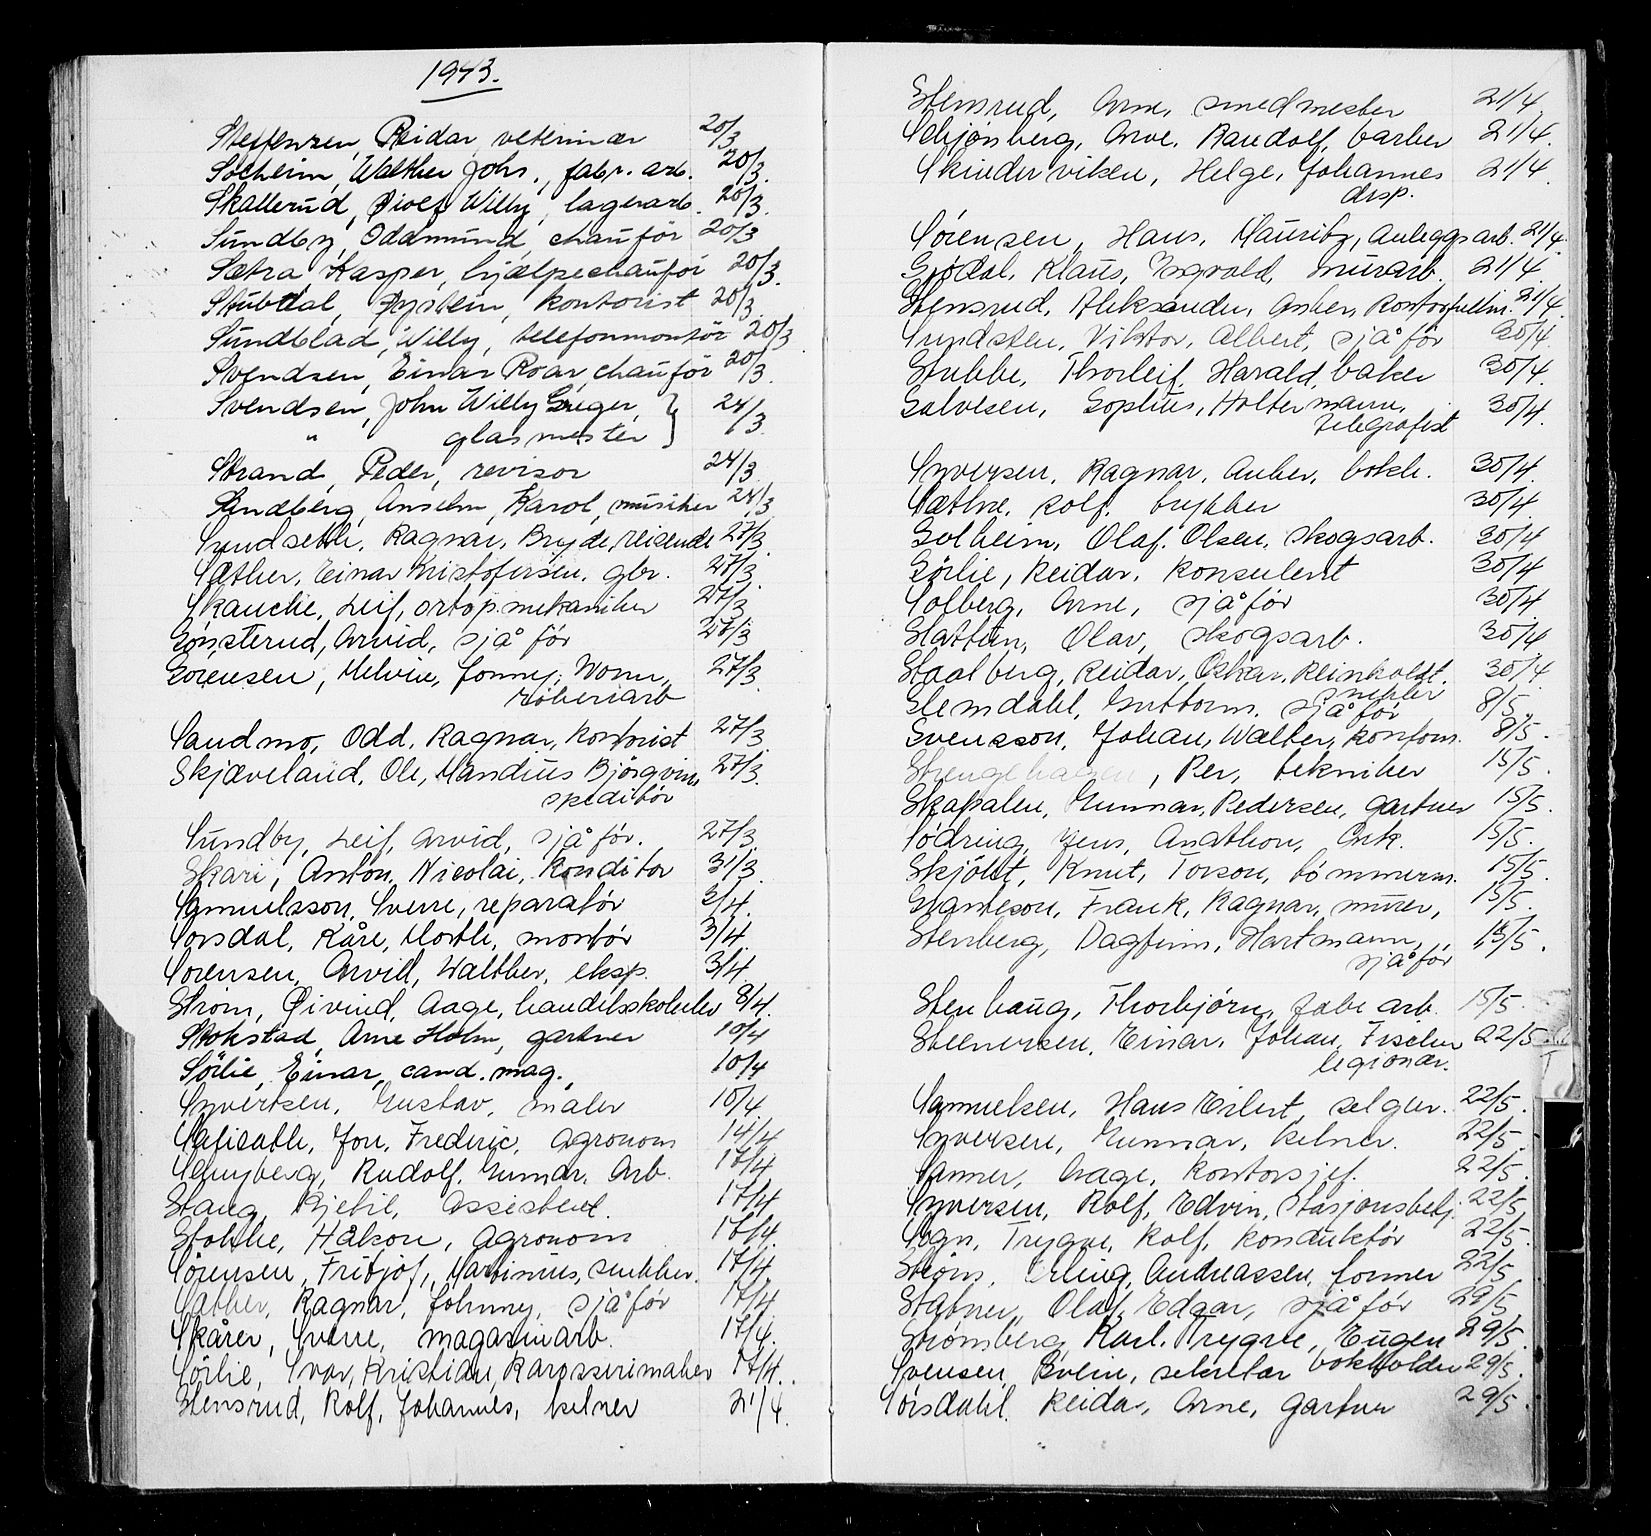 1943.
Steffenzen, Reidar, veterinær 20/3
Solheim, Walther Johs., fabr. arb. 20/3.
Skallerud, Willy, lagerarb. 20/3.
Sundby, Oddmund, chaufför 20/3
Sætra Kasper, hjælpechaufför 20/3.
Stubdal, Øystein, kontorist 20/3
Sundblad, Willy, telefonmontör 20/3
Svendsen, Einar Roar, chaufför 20/3.
Svendsen, John Willy 24/3.
" glasmester
Strand, Peder, revisor 24/3
Sandberg, Anselm, Karol, musiker 24/3
Sundseth, Ragnar, Bryde, reisende 27/3.
Sæther, Einar Kristofersen, gbr. 27/3
Skauche, Leif, ortop. mekaniker 27/3
Sönsterud, Arvid, sjåför 27/3
Sörensen, Melvin, Jonny, 27/3.
støberiarb
Sandmo, Odd, Ragnar, kontorist 27/3.
Skjæveland, Ole, Mandius Bjørgvin, 27/3.
speditör
Sundby, Leif, Arvid, sjåför. 27/3.
Skari, Anton, Nicolai, konditor 31/3.
Samuelsson, Sverre, reparatör 3/4.
Sorsdal, Kåre, montör 3/4.
Sörensen, Arvill, Walther, eksp. 3/4
Ström, Øivind, Aage, handelsskoleelev 8/4.
Stokstad, Arne Holm, gartner 10/4
Sörlie, Einar, cand. mag., 10/4
Syvertsen, Gustav, maler 10/4.
Jon, Frederic, agronom 14/4
Rudolf, Gunnar, Arb. 17/4
Stang, Kjetil, Assistent. 17/4
Håkon, Agronom 17/4.
Sörensen, Fritjof, Martinius, snekker. 17/4
Sæther, Ragnar, Johnny, sjåför 17/4
Skårer, Sverre, magasinarb. 17/4.
Sörlie, Ivar, Kristian, Karosserimaker 17/4.
Stensrud, Rolf, Johannes, kelner 21/4.
Stensrud, Arne, smedmester 21/4
Schjönberg, Arve, Randolf, barber 21/4.
Skinderviken, Helge, Johannes 21/4.
disp.
Sörensen, Hans, Mauritz, Anleggsarb. 21/4.
Sjödal, Klaus, Ingvald, murarb. 21/4
Stensrud, Aleksander, Kontorfullm. 21/4.
Sundsten, Viktor, Albert, sjåför 30/4.
Stubbe, Thorleif, Harald, baker 30/4.
Salvesen, Sophus, Holtermann, 30/4.
telegrafist
Syversen, Ragnar, bokh. 30/4.
Sæthre, Rolf, trykker 30/4.
Solheim, Olaf, Olsen, skogsarb. 30/4
Sörlie, Reidar, konsulent 30/4
Solberg, Arne, sjåför 30/4
Slatten, Olav, skogsarb. 30/4
Staalberg, Reidar, Oskar, Reinholdt. 30/4
snekker
Slemdahl, Guttorm, sjåför 8/5.
Svensson, Johan, Walter, kontorm. 8/5.
Stengehagen, Per, tekniker 15/5.
Skapalen, Gunnar, Pedersen, gartner 15/5.
Södring, Jens, Anathon, Ark. 15/5.
Skjölt, Knut, Torson, tömmerm. 15/5.
Frank, Ragnar, murer, 15/5.
Stenberg, Dagfinn, Hartmann, 15/5.
sjåför
Stenhaug, Thorbjörn, fabr arb. 15/5.
Steenersen, Einar, Johan, Fischer 22/5.
legionær.
Samuelsen, Hans Eilert, selger. 22/5.
Syversen, Gunnar, kelner. 22/5.
Sanner, Aage, kontorsjef. 22/5.
Syversen, Rolf, Edvin, Stasjonsbetj. 22/5,
Sogn, Trygve, Rolf, konduktör 22/5.
Ström, Erling, Andreassen, former 22/5.
Stabner, Olaf, Edgar, sjåför 29/5
Strömsberg, Karl, Trygve, Eugen 29/5.
bokholder
Svensen, Svein, sekretær 29/5.
Sörsdahl, Reidar, Arne, gartner 29/5.